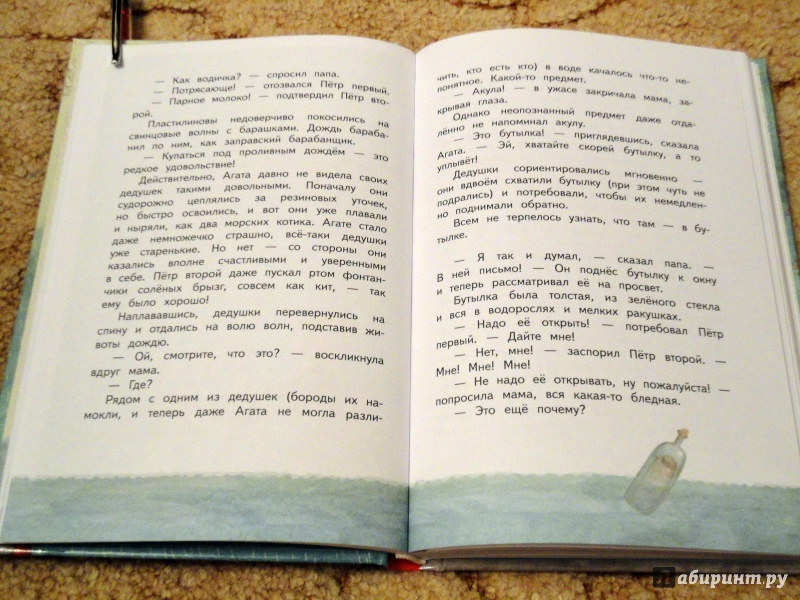 — Как водичка? — спросил папа.
— Потрясающе! — отозвался Пётр первый.
— Парное молоко! — подтвердил Пётр вто-
рой.
Пластилиновы недоверчиво покосились на
свинцовые волны с барашками. Дождь бараба-
нил по ним, как заправский барабанщик.
— Купаться под проливным дождём — это
редкое удовольствие!
Действительно, Агата давно не видела своих
дедушек такими довольными. Поначалу они
судорожно цеплялись за резиновых уточек,
но быстро освоились, и вот они уже плавали
и ныряли, как два морских котика. Агате стало
даже немножечко страшно, всё-таки дедушки
уже старенькие. Но нет — со стороны они
казались вполне счастливыми и уверенными
в себе. Пётр второй даже пускал ртом фонтан-
чики солёных брызг, совсем как кит, — так
ему было хорошо!
Наплававшись, дедушки перевернулись на
спину и отдались на волю волн, подставив жи-
воты дождю.
— Ой, смотрите, что это? — воскликнула
вдруг мама.
— Где?
Рядом с одним из дедушек (бороды их на-
мокли, и теперь даже Агата не могла разли-
чить, кто есть кто) в воде качалось что-то не-
понятное. Какой-то предмет.
— Акула! — в ужасе закричала мама, за-
крывая глаза.
Однако неопознанный предмет даже отда-
лённо не напоминал акулу.
— Это бутылка! — приглядевшись, сказала
Агата. — Эй, хватайте скорей бутылку, а то
уплывёт!
Дедушки сориентировались мгновенно —
они вдвоём схватили бутылку (при этом чуть не
подрались) и потребовали, чтобы их немедлен-
но поднимали обратно.
Всем не терпелось узнать, что там — в бу-
тылке.
— Я так и думал, — сказал папа. —
В ней письмо! — Он поднёс бутылку к окну
и теперь рассматривал её на просвет.
Бутылка была толстая, из зелёного стекла
и вся в водорослях и мелких ракушках.
— Надо её открыть! — потребовал Пётр
первый. — Дайте мне!
— Нет, мне! — заспорил Пётр второй. —
Мне! Мне! Мне!
— Не надо её открывать, ну пожалуйста! —
попросила мама, вся какая-то бледная.
— Это ещё почему?
Лабиринт.ру